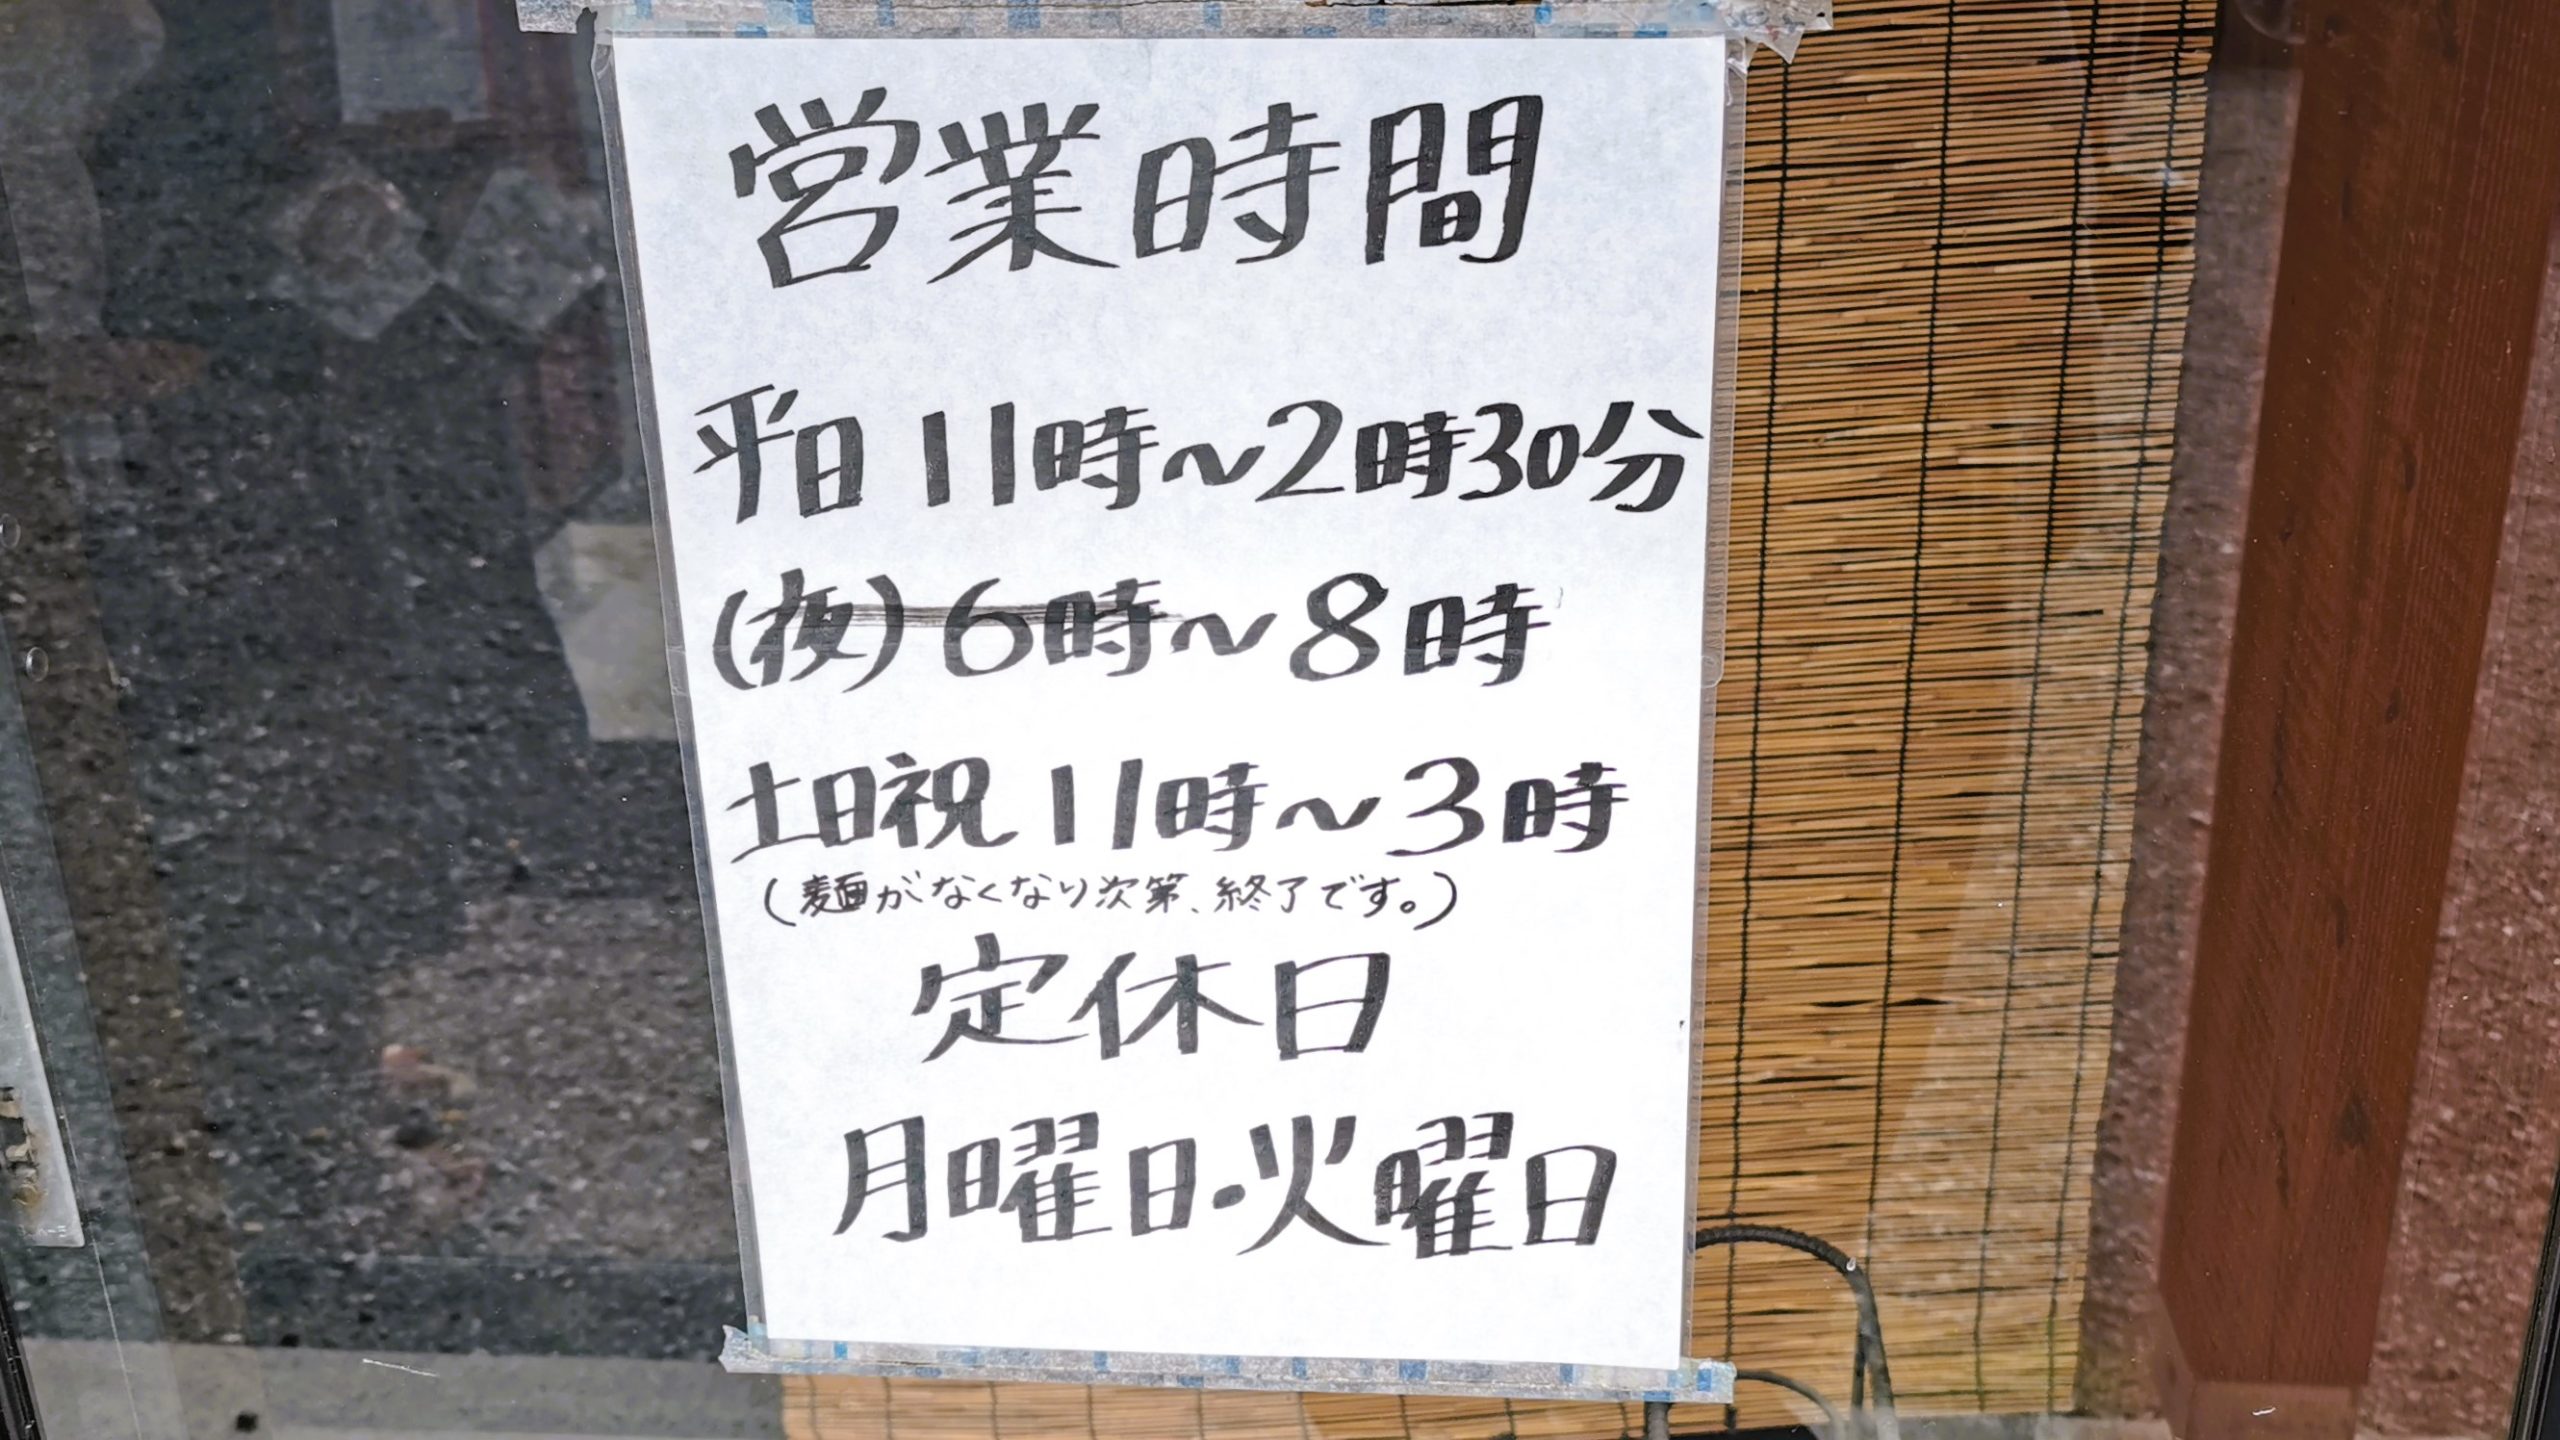 営業時間
平日 11時～2時30分
(夜) 6時～8時
土日祝 11時～3時
(麺がなくなり次第、終了です。)
定休日
月曜日・火曜日